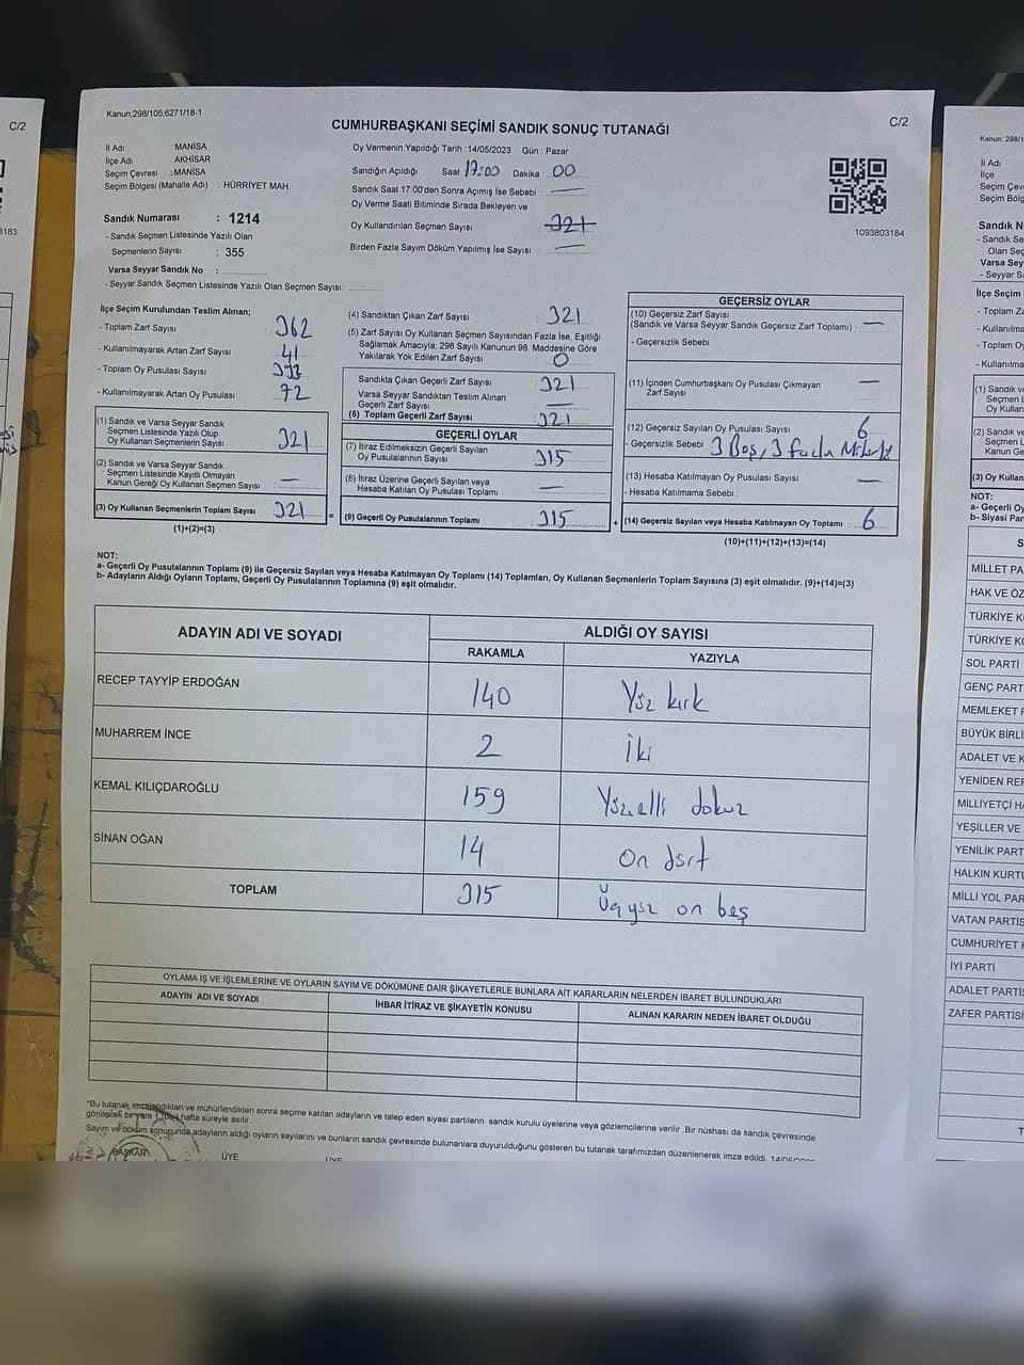 Kanun;298/105;6271/18-1
C/2
CUMHURBAŞKANI SEÇİMİ SANDIK SONUÇ TUTANAĞI
İl Adı MANİSA
İlçe Adı AKHİSAR
Seçim Çevresi :MANİSA
Seçim Bölgesi (Mahalle Adı) : HÜRRİYET MAH.
Sandık Numarası : 1214
- Sandık Seçmen Listesinde Yazılı Olan
Seçmenlerin Sayısı : 355
Varsa Seyyar Sandık No :
- Seyyar Sandık Seçmen Listesinde Yazılı Olan Seçmen Sayısı:
Oy Vermenin Yapıldığı Tarih :14/05/2023 Gün : Pazar
Sandığın Açıldığı Saat 17:00 Dakika 00
Sandık Saat 17.00'den Sonra Açılmış İse Sebebi
Oy Verme Saati Bitiminde Sırada Bekleyen ve
Oy Kullandırılan Seçmen Sayısı 321
Birden Fazla Sayım Döküm Yapılmış İse Sayısı
1093803184
İlçe Seçim Kurulundan Teslim Alınan;
- Toplam Zarf Sayısı 362
- Kullanılmayarak Artan Zarf Sayısı 41
- Toplam Oy Pusulası Sayısı 393
- Kullanılmayarak Artan Oy Pusulası 72
(1) Sandık ve Varsa Seyyar Sandık
Seçmen Listesinde Yazılı Olup
Oy Kullanan Seçmenlerin Sayısı 321
(2) Sandık ve Varsa Seyyar Sandık
Seçmen Listesinde Kayıtlı Olmayan
Kanun Gereği Oy Kullanan Seçmen Sayısı —
(3) Oy Kullanan Seçmenlerin Toplam Sayısı 321
(1)+(2)=(3)
(4) Sandıktan Çıkan Zarf Sayısı 321
(5) Zarf Sayısı Oy Kullanan Seçmen Sayısından Fazla İse, Eşitliği
Sağlamak Amacıyla; 298 Sayılı Kanunun 98. Maddesine Göre
Yakılarak Yok Edilen Zarf Sayısı 0
Sandıkta Çıkan Geçerli Zarf Sayısı 321
Varsa Seyyar Sandıktan Teslim Alınan
Geçerli Zarf Sayısı —
(6) Toplam Geçerli Zarf Sayısı 321
GEÇERLİ OYLAR
(7) İtiraz Edilmeksizin Geçerli Sayılan
Oy Pusulalarının Sayısı 315
(8) İtiraz Üzerine Geçerli Sayılan veya
Hesaba Katılan Oy Pusulası Toplamı —
(9) Geçerli Oy Pusulalarının Toplamı 315
GEÇERSİZ OYLAR
(10) Geçersiz Zarf Sayısı
(Sandık ve Varsa Seyyar Sandık Geçersiz Zarf Toplamı) : —
- Geçersizlik Sebebi
(11) İçinden Cumhurbaşkanı Oy Pusulası Çıkmayan
Zarf Sayısı —
(12) Geçersiz Sayılan Oy Pusulası Sayısı 6
Geçersizlik Sebebi 3 Boş, 3 fazla
(13) Hesaba Katılmayan Oy Pusulası Sayısı —
- Hesaba Katılmama Sebebi
(14) Geçersiz Sayılan veya Hesaba Katılmayan Oy Toplamı 6
(10)+(11)+(12)+(13)=(14)
NOT:
a- Geçerli Oy Pusulalarının Toplamı (9) ile Geçersiz Sayılan veya Hesaba Katılmayan Oy Toplamı (14) Toplamları, Oy Kullanan Seçmenlerin Toplam Sayısına (3) eşit olmalıdır. (9)+(14)=(3)
b- Adayların Aldığı Oyların Toplamı, Geçerli Oy Pusulalarının Toplamına (9) eşit olmalıdır.
ADAYIN ADI VE SOYADI
ALDIĞI OY SAYISI
RAKAMLA YAZIYLA
RECEP TAYYİP ERDOĞAN 140 Yüz kırk
MUHARREM İNCE 2 İki
KEMAL KILIÇDAROĞLU 159 Yüzelli dokuz
SİNAN OĞAN 14 On dört
TOPLAM 315 Üçyüz on beş
OYLAMA İŞ VE İŞLEMLERİNE VE OYLARIN SAYIM VE DÖKÜMÜNE DAİR ŞİKAYETLERLE BUNLARA AİT KARARLARIN NELERDEN İBARET BULUNDUKLARI
ADAYIN ADI VE SOYADI
İHBAR İTİRAZ VE ŞİKAYETİN KONUSU
ALINAN KARARIN NEDEN İBARET OLDUĞU
*Bu tutanak imzalandıktan ve mühürlendikten sonra seçime katılan adayların ve talep eden siyasi partilerin sandık kurulu üyelerine veya gözlemcilerine verilir. Bir nüshası da sandık çevresinde
görülecek bir yere 1 hafta süreyle asılır.
Sayım ve döküm sonucunda adayların aldığı oyların sayılarını ve bunların sandık çevresinde bulunanlara duyurulduğunu gösteren bu tutanak tarafımızdan düzenlenerek imza edildi.
BAŞKAN
ÜYE
ÜYE
C/2
Kanun; 298/1
İl Adı
İlçe
Seçim Çev
Seçim Bölg
Sandık N
- Sandık Se
Olan Seç
Varsa Sey
- Seyyar S
İlçe Seçim
- Toplam Z
- Kullanılma
- Toplam O
- Kullanılma
(1) Sandık v
Seçmen L
Oy Kullan
(2) Sandık ve
Seçmen L
Kanun Ge
(3) Oy Kullan
NOT:
a- Geçerli Oy
b- Siyasi Par
S
MİLLET PA
HAK VE ÖZ
TÜRKİYE K
TÜRKİYE KO
SOL PARTİ
GENÇ PART
MEMLEKET P
BÜYÜK BİRLİ
ADALET VE K
YENİDEN REF
MİLLİYETÇİ HA
YEŞİLLER VE
YENİLİK PART
HALKIN KURTU
MİLLİ YOL PAR
VATAN PARTİS
CUMHURİYET H
İYİ PARTİ
ADALET PARTİS
ZAFER PARTİSİ
T